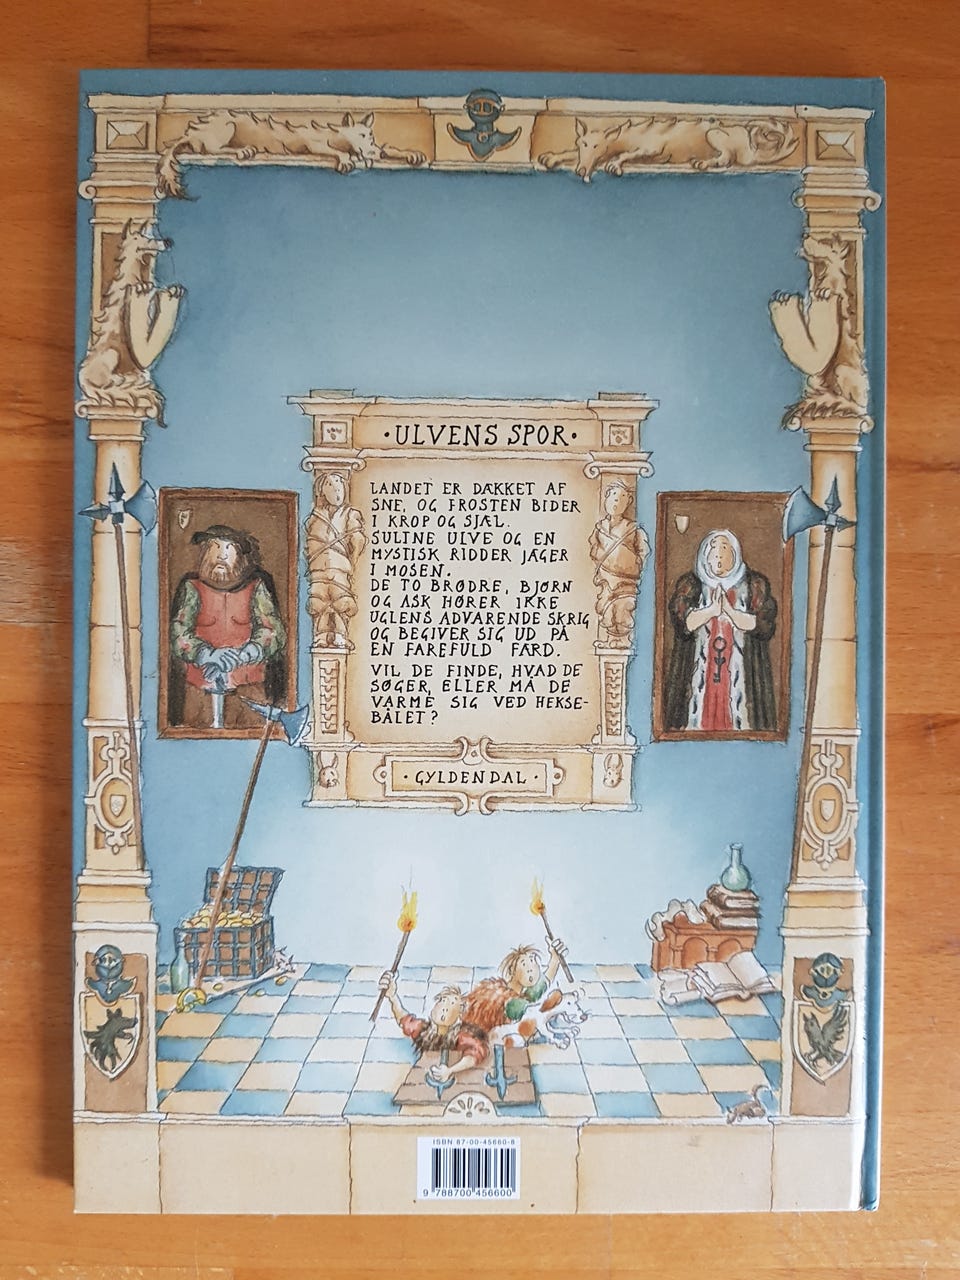 ·ULVENS SPOR·
LANDET ER DÆKKET AF
SNE, OG FROSTEN BIDER
I KROP OG SJÆL.
SULTNE ULVE OG EN
MYSTISK RIDDER JAGER
I MOSEN.
DE TO BRØDRE, BJØRN
OG ASK HØRER IKKE
UGLENS ADVARENDE SKRIG
OG BEGIVER SIG UD PÅ
EN FAREFULD FÆRD.
VIL DE FINDE, HVAD DE
SØGER, ELLER MÅ DE
VARME SIG VED HEKSE-
BÅLET?
·GYLDENDAL·
ISBN 87-00-45660-8
9 788700 456600